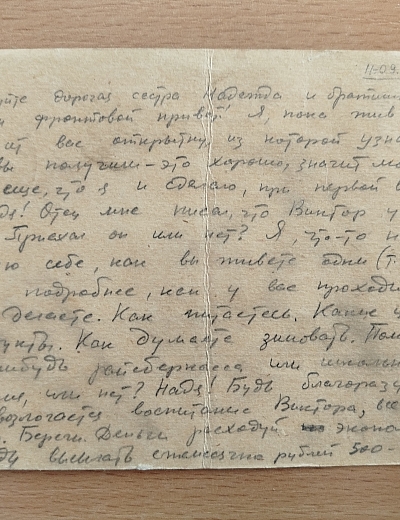 11-09.
йте дорогая сестра Надежда и братишк
й фронтовой привет! Я, пока жив
от вас открытку из которой узна
вы получили - это хорошо, значит мо
еще, что я и сделаю, при первой в
дя! Отец мне писал, что Виктор у
Приехал он или нет? Я, что-то н
ю себе, как вы живете одни (т.
подробнее, как у вас проходи
Делаете. Как питаетесь. Какие ц
укты. Как думаете зимовать. Пом
нибудь райсобеса или школьн
ия, или нет? Надя! Будь благоразу
возлогается воспитание Виктора, все
. Береги. Деньги расходуй эконо
ду высылать ежемесячно рублей 500-